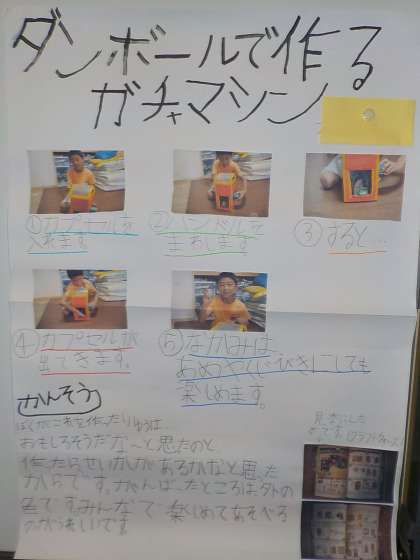 ダンボールで作る
ガチャマシン
①カプセルを
入れます
②ハンドルを
まわします
③すると…
④カプセルが
出てきます。
⑤なかみは
あめやくじびきにしても
楽しめます。
かんそう
ぼくがこれを作ったりゆうは、
おもしろそうだな〜と思たのと
作たらせいかがあるかなと思った
からです。がんばったところは、外の
色です。みんなで楽しめてあそべる
のがうれしいです